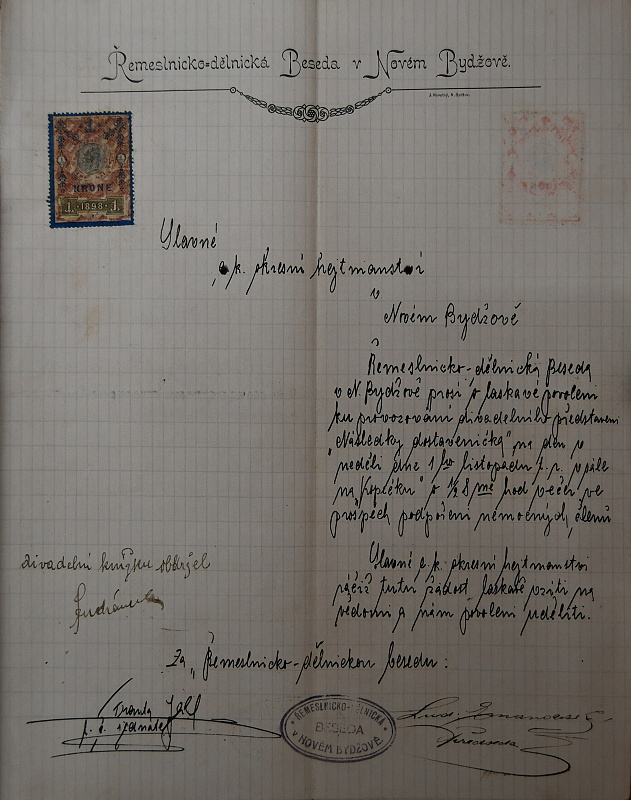 Řemeslnicko-dělnická Beseda v Novém Bydžově.
KRONE
1. 1898 1.
Slavné
c. k. okresní hejtmanství
v
Novém Bydžově
Řemeslnicko-dělnická Beseda
v N. Bydžově prosí o laskavé povolení
ku provozování divadelního představení
„Následky dostaveníčka" na den v
neděli dne 1ho listopadu t. r. v sále
na „Kopečku" o ½ 8mé hod večer, ve
prospěch podpoření nemocných členů
Slavné c. k. okresní hejtmanství
račiž tuto žádost laskavě vzíti na
vědomí a nám povolení uděliti.
divadelní knížku obdržel
Za „Řemeslnicko-dělnickou besedu:
t. č. jednatel
ŘEMESLNICKO-DĚLNICKÁ
BESEDA
v NOVÉM BYDŽOVĚ
předseda